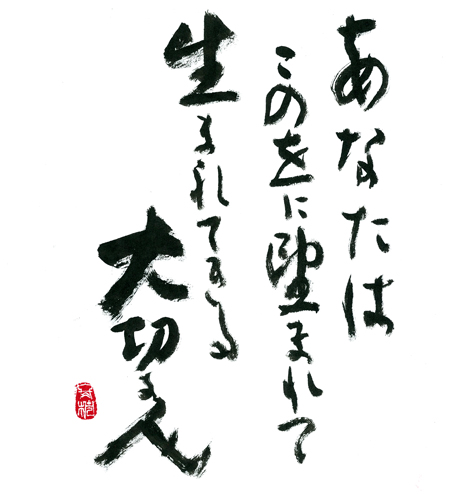 あなたは
この世に望まれて
生まれてきた
大切な人